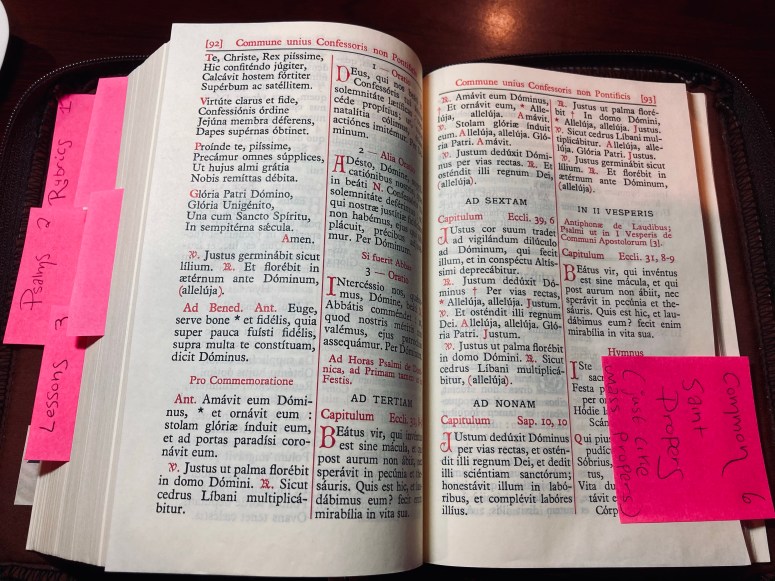 [92] Commune unius Confessoris non Pontificis
Te, Christe, Rex piíssime,
Hic confiténdo júgiter,
Calcávit hostem fórtiter
Supérbum ac satéllitem.
Virtúte clarus et fide,
Confessiónis órdine
Jejúna membra déferens,
Dapes supérnas óbtinet.
Proínde te, piíssime,
Precámur omnes súpplices,
Ut hujus almi grátia
Nobis remíttas débita.
Glória Patri Dómino,
Glória Unigénito,
Una cum Sancto Spíritu,
In sempitérna sǽcula.
Amen.
℣. Justum germinábit sicut
lílium. ℟. Et florébit in
ætérnum ante Dóminum,
(allelúja).
Ad Bened. Ant. Euge,
serve bone * et fidélis, quia
super pauca fuísti fidélis,
supra multa te constítuam,
dicit Dóminus.
Pro Commemoratione
Ant. Amávit eum Dómi-
nus, * et ornávit eum :
stolam glóriæ índuit eum,
et ad portas paradísi coro-
návit eum.
℣. Justus ut palma florébit
in domo Dómini. ℟. Sicut
cedrus Líbani multiplicá-
bitur.
1 — Oratio
Deus, qui nos
Confessóris
solemnitáte lætíficas
céde propítius;
natalítia cólimus,
actiónes imitémur.
minum.
2 — Alia
Adésto, Dómine,
catiónibus
in beáti N.
solemnitáte deférimus
qui nostræ justítiæ
non habémus, ejus
plácuit, précibus
mur. Per Dóminum
Si fuerit Abbas
3 — Oratio
Intercéssio nos,
mus, Dómine,
Abbátis comméndet
quod nostris méritis
valémus, ejus
assequámur. Per Dóminum
Ad Horas Psalmi de
nica, ad Primam tamen
Festis.
AD TERTIAM
Capitulum Eccli. 31, 8-9
Beátus vir, qui invéntus
est sine mácula, et qui
post aurum non ábiit, nec
sperávit in pecúnia et the-
sáuris. Quis est hic, et lau-
dábimus eum? fecit enim
mirabília in vita sua.
Commune unius Confessoris non Pontificis [93]
℟. Amávit eum Dóminus,
† Et ornávit eum, * Alle-
lúja, allelúja. Amávit.
℣. Stolam glóriæ índuit
eum. Allelúja, allelúja. Gló-
ria Patri. Amávit.
℣. Justum dedúxit Dómi-
nus per vias rectas. ℟. Et
osténdit illi regnum Dei,
(allelúja).
AD SEXTAM
Capitulum Eccli. 39, 6
Justus cor suum tradet
ad vigilándum dilúculo
ad Dóminum, qui fecit
illum, et in conspéctu Altís-
simi deprecábitur.
℟. Justum dedúxit Dó-
minus † Per vias rectas,
* Allelúja, allelúja. Justum.
℣. Et osténdit illi regnum
Dei. Allelúja, allelúja. Gló-
ria Patri. Justum.
℣. Justus ut palma florébit
in domo Dómini. ℟. Sicut
cedrus Líbani multiplicá-
bitur, (allelúja).
AD NONAM
Capitulum Sap. 10, 10
Justum dedúxit Dóminus
per vias rectas, et osténd-
it illi regnum Dei, et dedit
illi sciéntiam sanctórum;
honestávit illum in labó-
ribus, et complévit labóres
illíus.
℟. Justus ut palma floré-
bit † In domo Dómini,
* Allelúja, allelúja. Justus.
℣. Sicut cedrus Líbani mul-
tiplicábitur. Allelúja, allelú-
ja. Glória Patri. Justus.
℣. Justus germinábit sicut
lílium. ℟. Et florébit in
ætérnum ante Dóminum,
(allelúja).
IN II VESPERIS
Antiphonæ de Laudibus;
Psalmi ut in I Vesperis de
Communi Apostolorum [3].
Capitulum Eccli. 31, 8-9
Beátus vir, qui invéntus
est sine mácula, et qui
post aurum non ábiit, nec
sperávit in pecúnia et the-
sáuris. Quis est hic, et lau-
dábimus eum? fecit enim
mirabília in vita sua.
Hymnus
Iste
Festa
Hódie
Qui
Sóbrius,
Vita
Rubrics 1
Psalms 2
Lessons 3
common 6
Saint
Propers
(just like
mass propers)